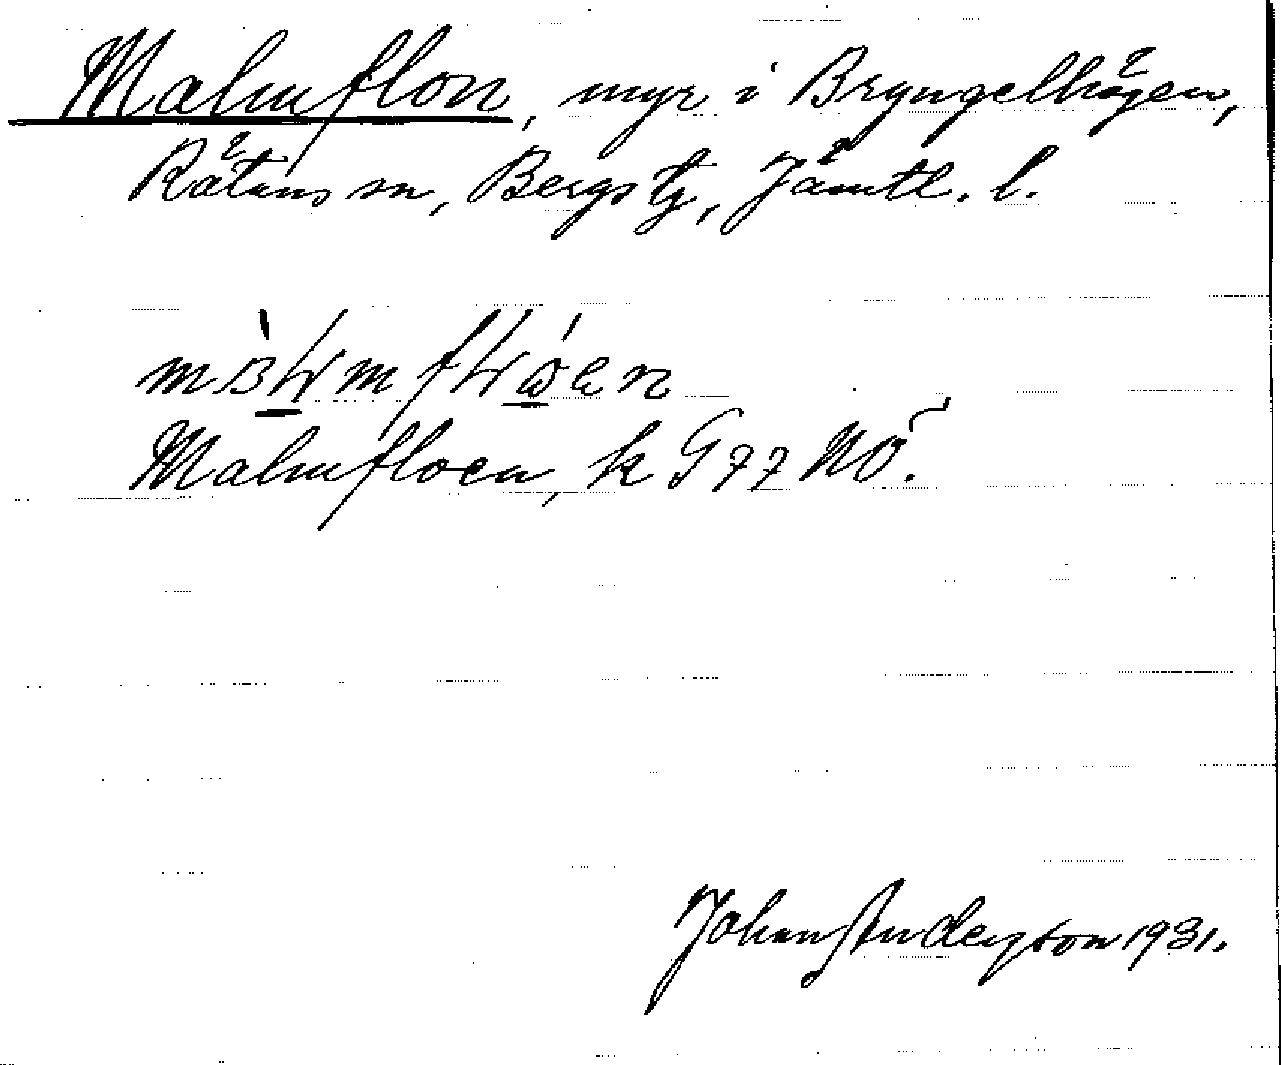 Malmflon, myr i Bryngelhögen,
Rätans sn, Bergs tg, Jämtl. l.
Malmfloen, k G 77 NÖ.
Johan Anderson 1931.